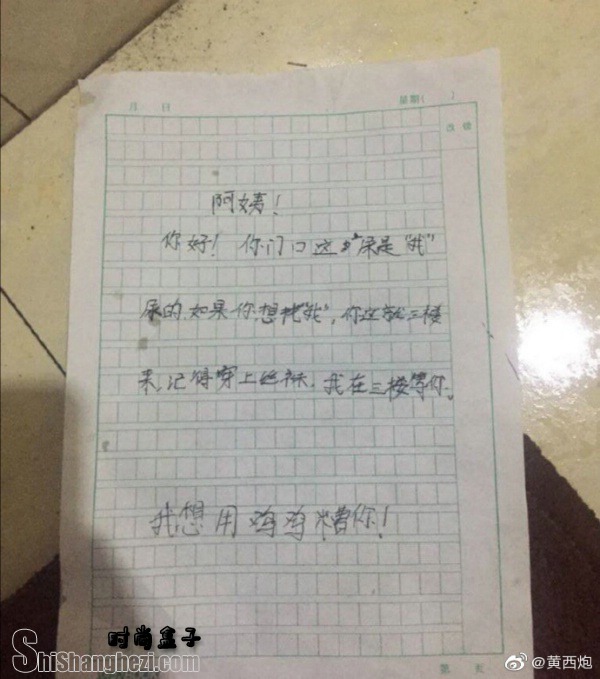 月 日 星期( )
改错
阿姨!
你好! 你门口这尿是"我"
尿的.如果你想找"我", 你这就三楼
来,记得穿上丝袜. 我在三楼等你。
我想用 你!
第 页
时尚盒子
ShiShanghezi.com
@黄西炮